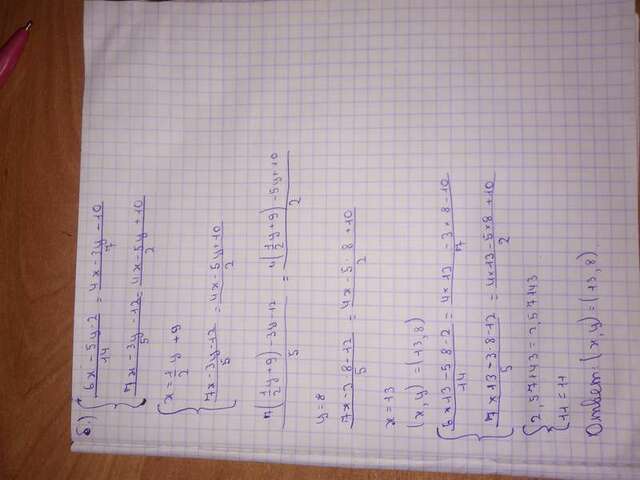 б.) { (6x - 5y - 2)/14 = (4x - 3y - 10)/7
(7x - 3y - 12)/5 = (4x - 5y + 10)/2
{ x = 1/2 y + 9
(7x - 3y - 12)/5 = (4x - 5y + 10)/2
(7(1/2 y + 9) - 3y - 12)/5 = (4(1/2 y + 9) - 5y + 10)/2
y = 8
(7x - 3 · 8 - 12)/5 = (4x - 5 · 8 + 10)/2
x = 13
(x, y) = (13, 8)
{ (6 × 13 - 5 · 8 - 2)/14 = (4 × 13 - 3 × 8 - 10)/7
(7 × 13 - 3 · 8 - 12)/5 = (4 × 13 - 5 × 8 + 10)/2
{ 2,57143 = 2,57143
11 = 11
Ответ: (x, y) = (13, 8)